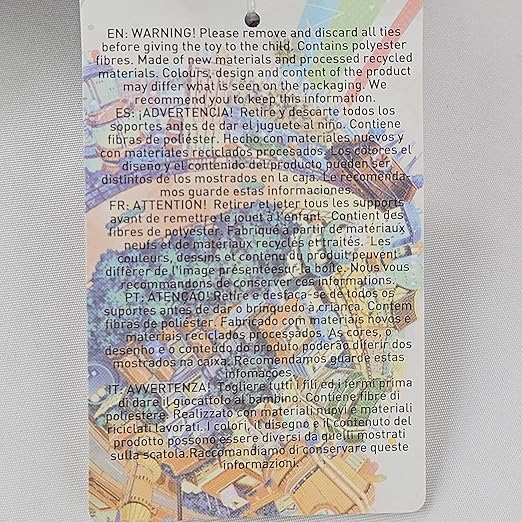 EN: WARNING! Please remove and discard all ties
before giving the toy to the child. Contains polyester
fibres. Made of new materials and processed recycled
materials. Colours, design and content of the product
may differ what is seen on the packaging. We
recommend you to keep this information.
ES: ¡ADVERTENCIA! Retire y descarte todos los
soportes antes de dar el juguete al niño. Contiene
fibras de poliéster. Hecho con materiales nuevos y
con materiales reciclados procesados. Los colores el
diseño y el contenido del producto pueden ser
distintos de los mostrados en la caja. Le recomenda-
mos guarde estas informaciones.
FR: ATTENTION! Retirer et jeter tous les supports
avant de remettre le jouet à l'enfant. Contient des
fibres de polyester. Fabriqué à partir de matériaux
neufs et de matériaux recyclés et traités. Les
couleurs, dessins et contenu du produit peuvent
différer de l'image présentée sur la boîte. Nous vous
recommandons de conserver ces informations.
PT: ATENÇÃO! Retire e desfaça-se de todos os
suportes antes de dar o brinquedo à criança. Contem
fibras de poliéster. Fabricado com materiais novos e
materiais reciclados processados. As cores, o
desenho e o conteúdo do produto poderão diferir dos
mostrados na caixa. Recomendamos guarde estas
infomações.
IT: AVVERTENZA! Togliere tutti i fili ed i fermi prima
di dare il giocattolo al bambino. Contiene fibre di
poliestere. Realizzato con materiali nuovi e materiali
riciclati lavorati. I colori, il disegno e il contenuto del
prodotto possono essere diversi da quelli mostrati
sulla scatola.Raccomandiamo di conservare queste
informazioni.